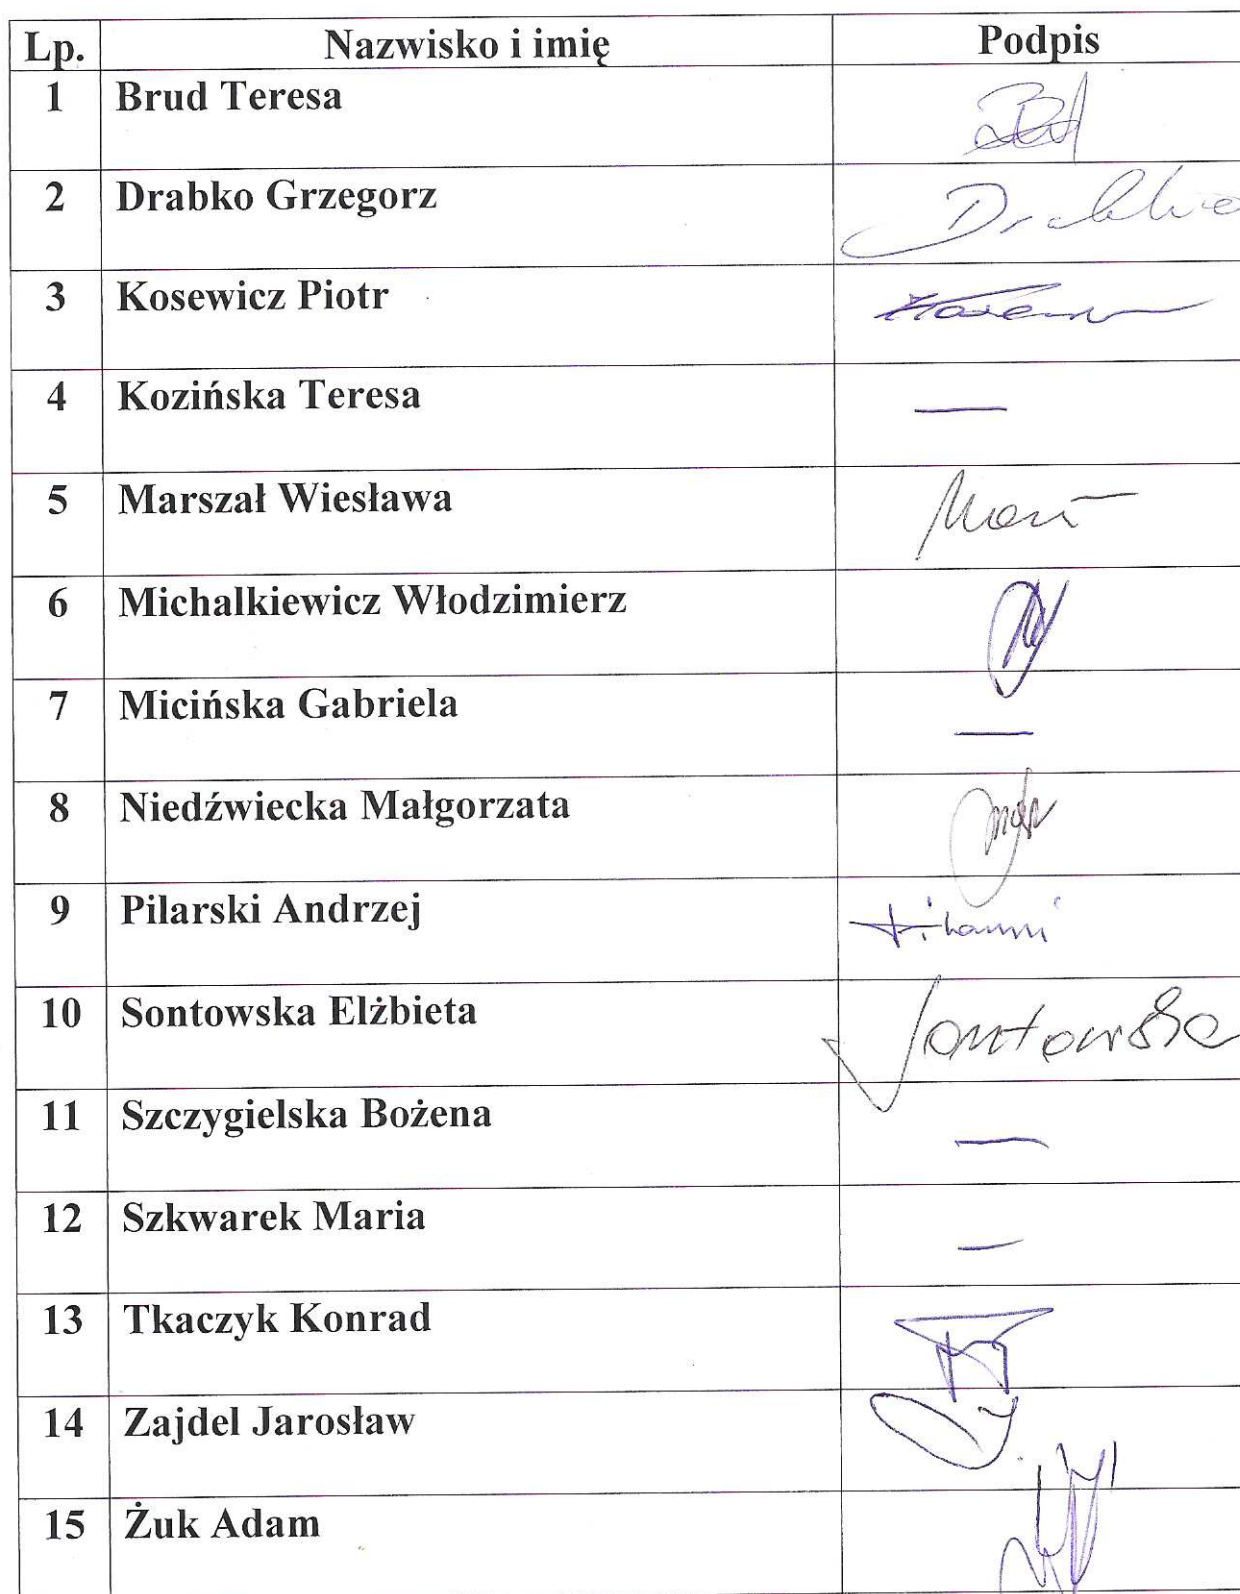 Lp. Nazwisko i imię Podpis
1 Brud Teresa
2 Drabko Grzegorz
3 Kosewicz Piotr
4 Kozińska Teresa —
5 Marszał Wiesława
6 Michalkiewicz Włodzimierz
7 Micińska Gabriela —
8 Niedźwiecka Małgorzata
9 Pilarski Andrzej
10 Sontowska Elżbieta Sontowska
11 Szczygielska Bożena —
12 Szkwarek Maria —
13 Tkaczyk Konrad
14 Zajdel Jarosław
15 Żuk Adam